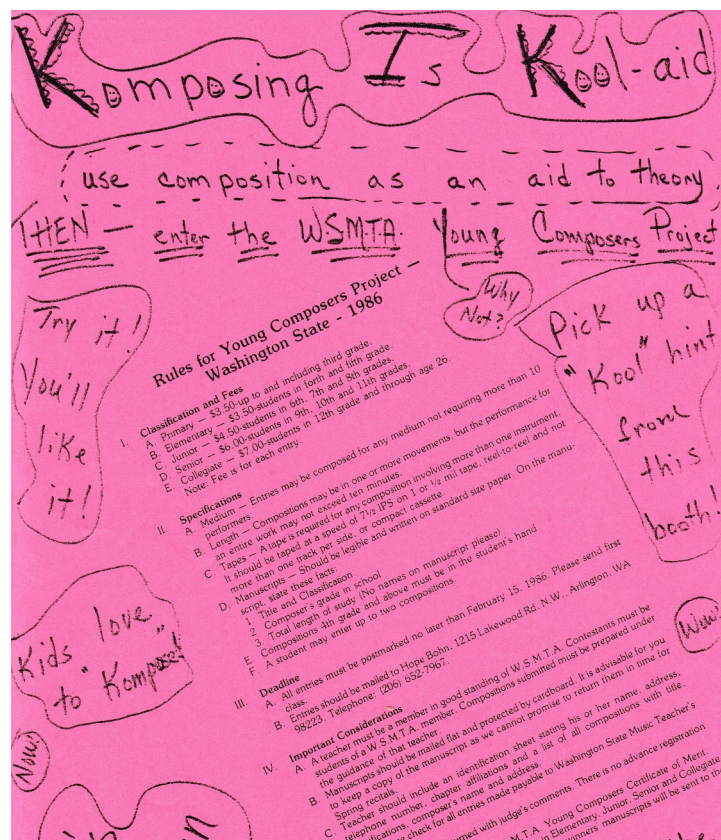 Komposing Is Kool-aid
use composition as an aid to theory
THEN — enter the WSMTA Young Composers Project
Why
Not?
Try it!
You'll
like
it!
Pick up a
"Kool" hint
from
this
booth!
Rules for Young Composers Project —
Washington State - 1986
I. Classification and Fees
A. Primary — $3.50-up to and including third grade.
B. Elementary — $3.50-students in forth and fifth grade.
C. Junior — $4.50-students in 6th, 7th and 8th grades.
D. Senior — $6.00-students in 9th, 10th and 11th grades.
E. Collegiate — $7.00-students in 12th grade and through age 26.
Note: Fee is for each entry.
II. Specifications
A. Medium — Entries may be composed for any medium not requiring more than 10
performers.
B. Length — Compositions may be in one or more movements, but the performance for
an entire work may not exceed ten minutes.
C. Tapes — A tape is required for any composition involving more than one instrument.
It should be taped at a speed of 7½ IPS on 1 or ½ mil tape, reel-to-reel and not
more than one track per side, or compact cassette.
D. Manuscripts — Should be legible and written on standard size paper. On the manu-
script, state these facts:
1. Title and Classification
2. Composer's grade in school
3. Total length of study (No names on manuscript please)
E. Compositions 4th grade and above must be in the student's hand
F. A student may enter up to two compositions.
III. Deadline
A. All entries must be postmarked no later than February 15, 1986. Please send first
class.
B. Entries should be mailed to Hope Bohn, 1215 Lakewood Rd. N.W., Arlington, WA
98223. Telephone: (206) 652-7967.
IV. Important Considerations
A. A teacher must be a member in good standing of W.S.M.T.A. Contestants must be
students of a W.S.M.T.A. member. Compositions submitted must be prepared under
the guidance of that teacher.
B. Manuscripts should be mailed flat and protected by cardboard. It is advisable for you
to keep a copy of the manuscript as we cannot promise to return them in time for
Spring recitals.
C. Teacher should include an identification sheet stating his or her name, address,
telephone number, chapter affiliations and a list of all compositions with title,
composer's name and address.
check for all entries made payable to Washington State Music Teacher's
with judge's comments. There is no advance registration
Young Composers Certificate of Merit.
in Elementary, Junior, Senior and Collegiate
manuscripts will be sent to the
Kids love
to "Kompose!"
Wow!
Now!